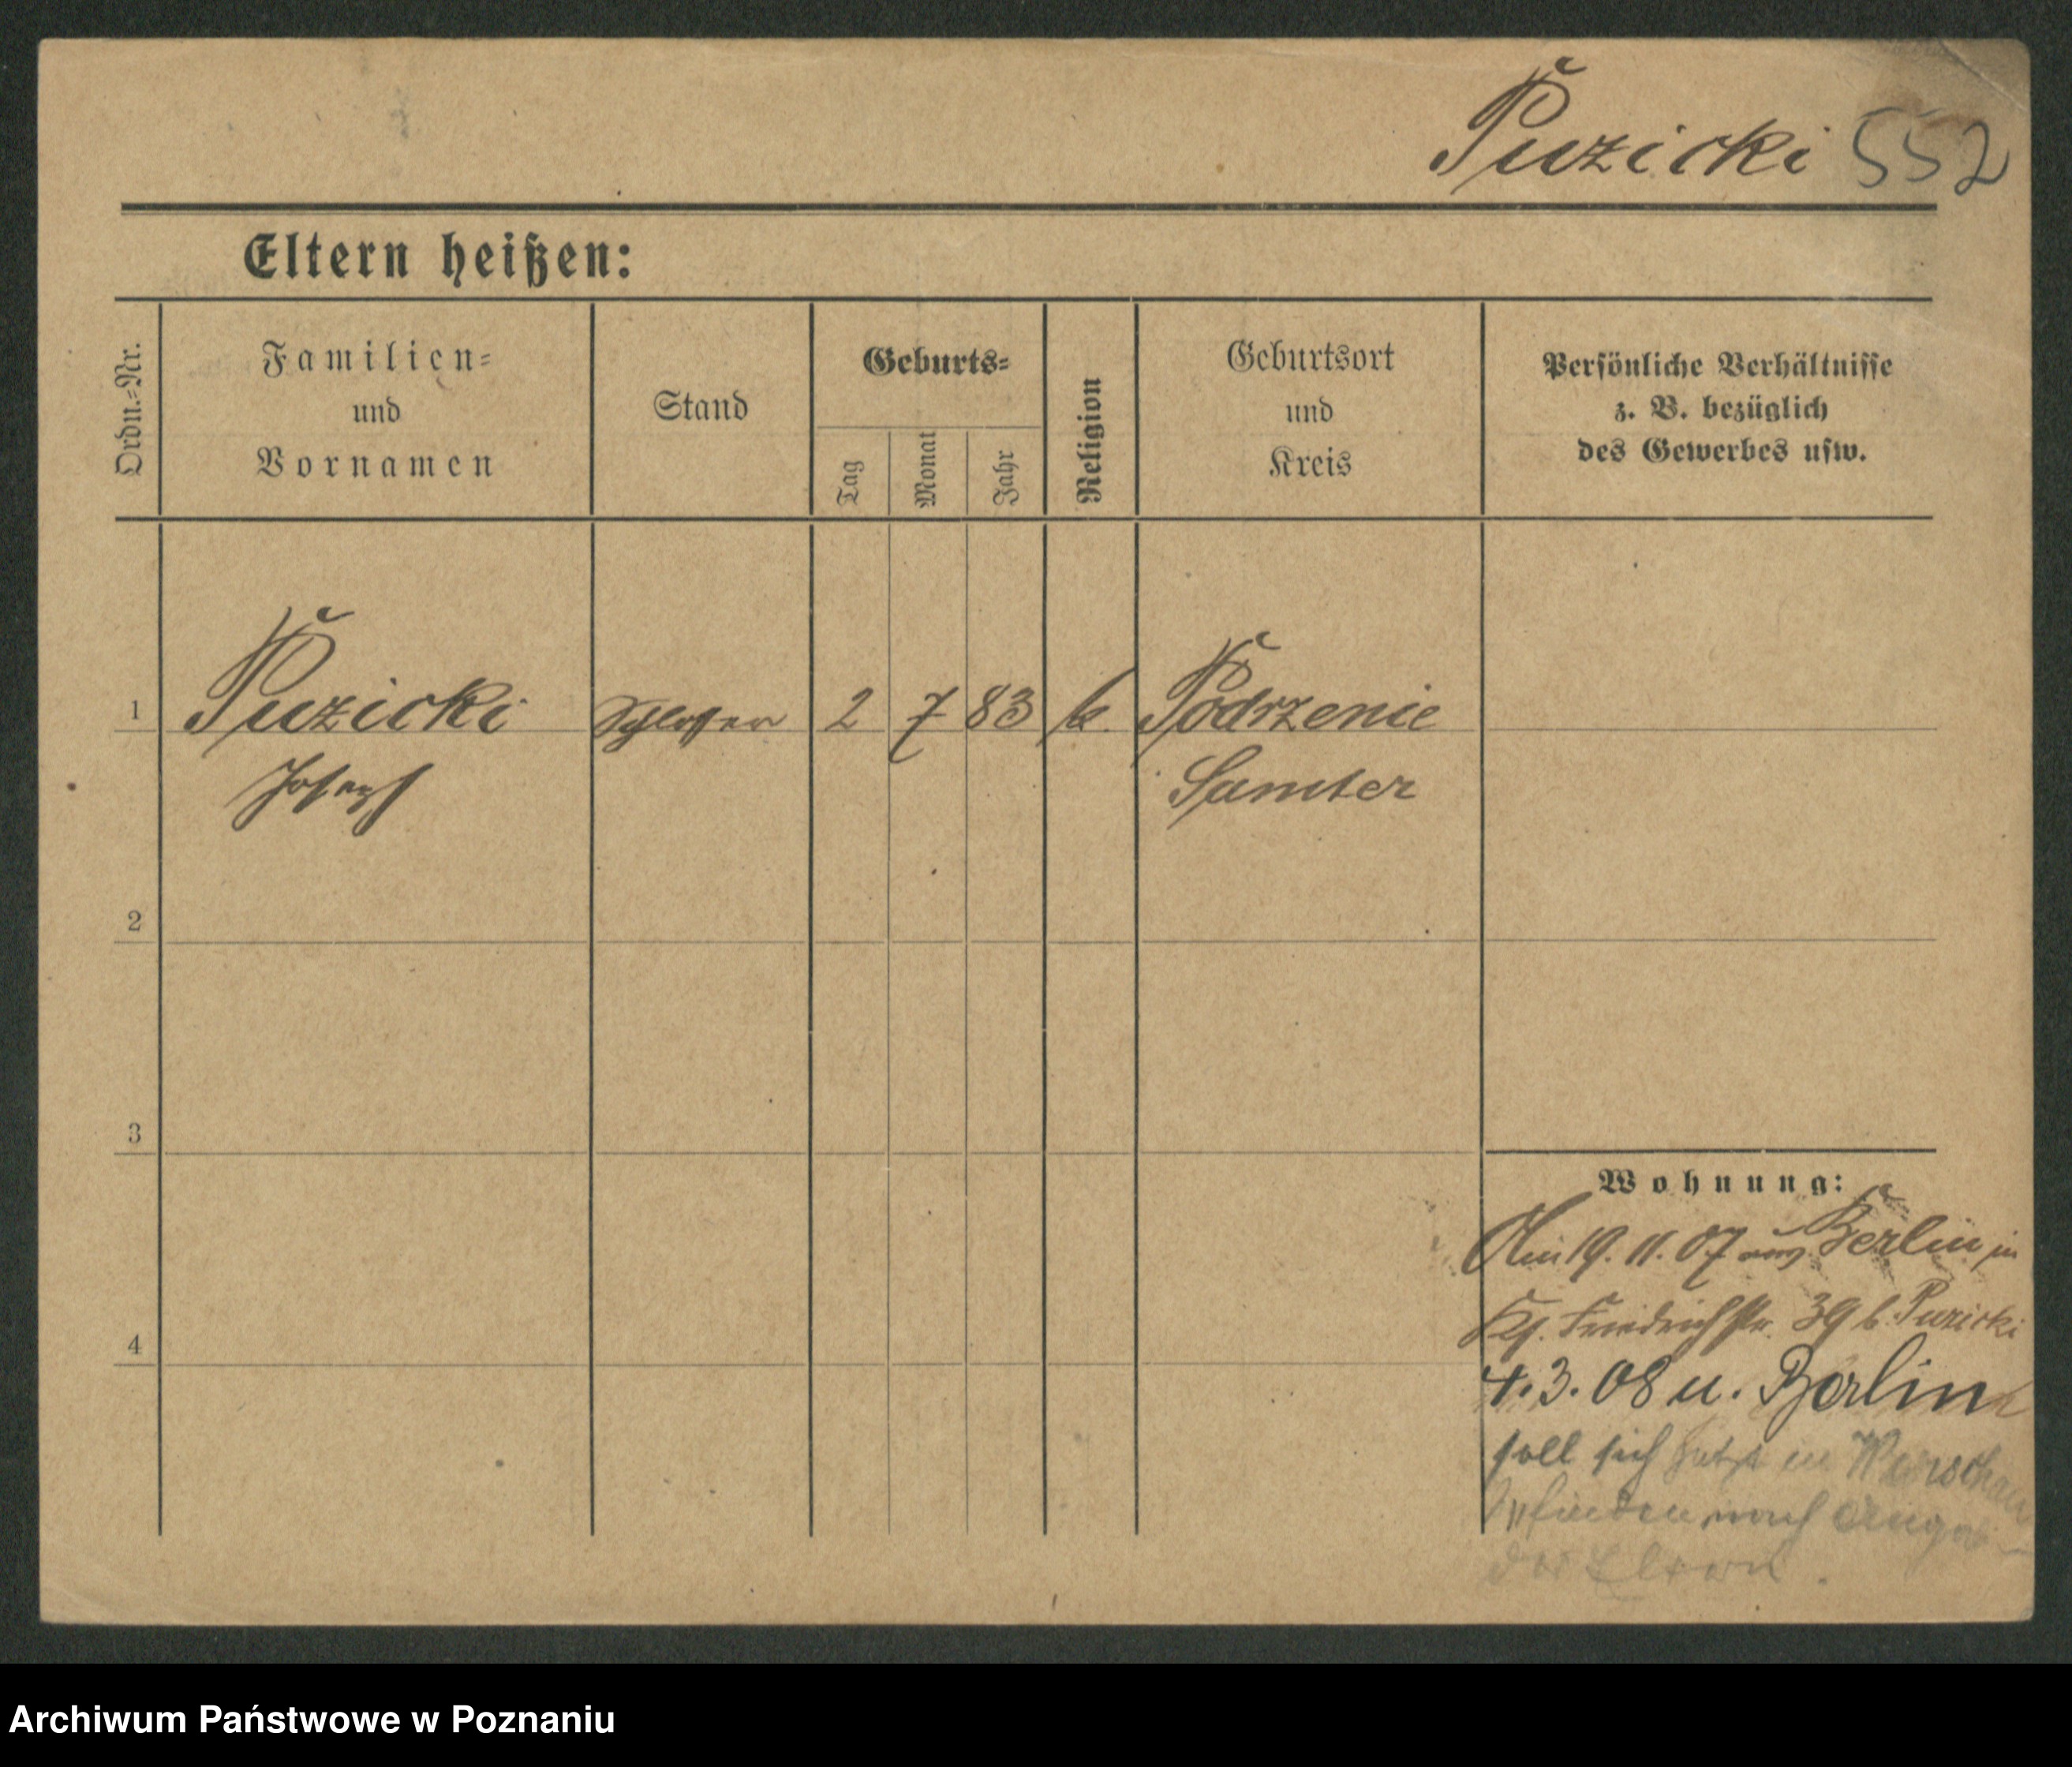 Puzicki 552
Eltern heißen:
Ordn.-Nr.
Familien-
und
Vornamen
Stand
Geburts-
Tag
Monat
Jahr
Religion
Geburtsort
und
Kreis
Persönliche Verhältnisse
z. B. bezüglich
des Gewerbes usw.
1 Puzicki Schlosser 2 7 83 k. Podrzenie
Joseph Samter
2
3
4
Wohnung:
Am 19. 11. 07 aus Berlin in
Friedrichstr. 39 b. Puzicki
4.3.08 u. Berlin
soll sich jetzt in Warschau
befinden, nach Angabe
der Eltern.
Archiwum Państwowe w Poznaniu